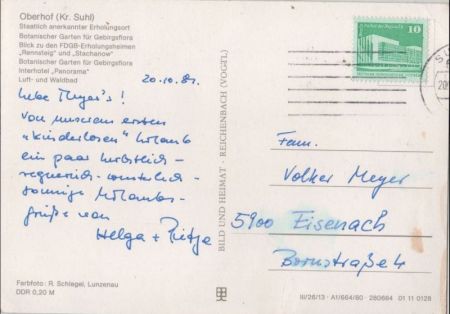 Oberhof (Kr. Suhl)
Staatlich anerkannter Erholungsort
Botanischer Garten für Gebirgsflora
Blick zu den FDGB-Erholungsheimen
„Rennsteig" und „Stachanow"
Botanischer Garten für Gebirgsflora
Interhotel „Panorama"
Luft- und Waldbad
20.10.81.
Liebe Meyer's!
Von unserem ersten
"kinderlosen" Urlaub
ein paar herbstlich-
regnerisch-
sonnige Urlaubs-
grüße von
Helga +
Farbfoto: R. Schlegel, Lunzenau
DDR 0,20 M
BILD UND HEIMAT · REICHENBACH (VOGTL)
10
Fam.
Volker Meyer
5900 Eisenach
Bornstraße 4
III/26/13 · A1/664/80 · 280664 01 11 0128